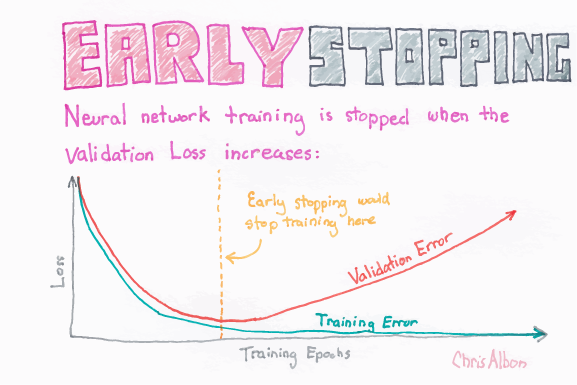 EARLY STOPPING
Neural network training is stopped when the
Validation Loss increases:
Early stopping would
stop training here
Loss
Validation Error
Training Error
Training Epochs
Chris Albon